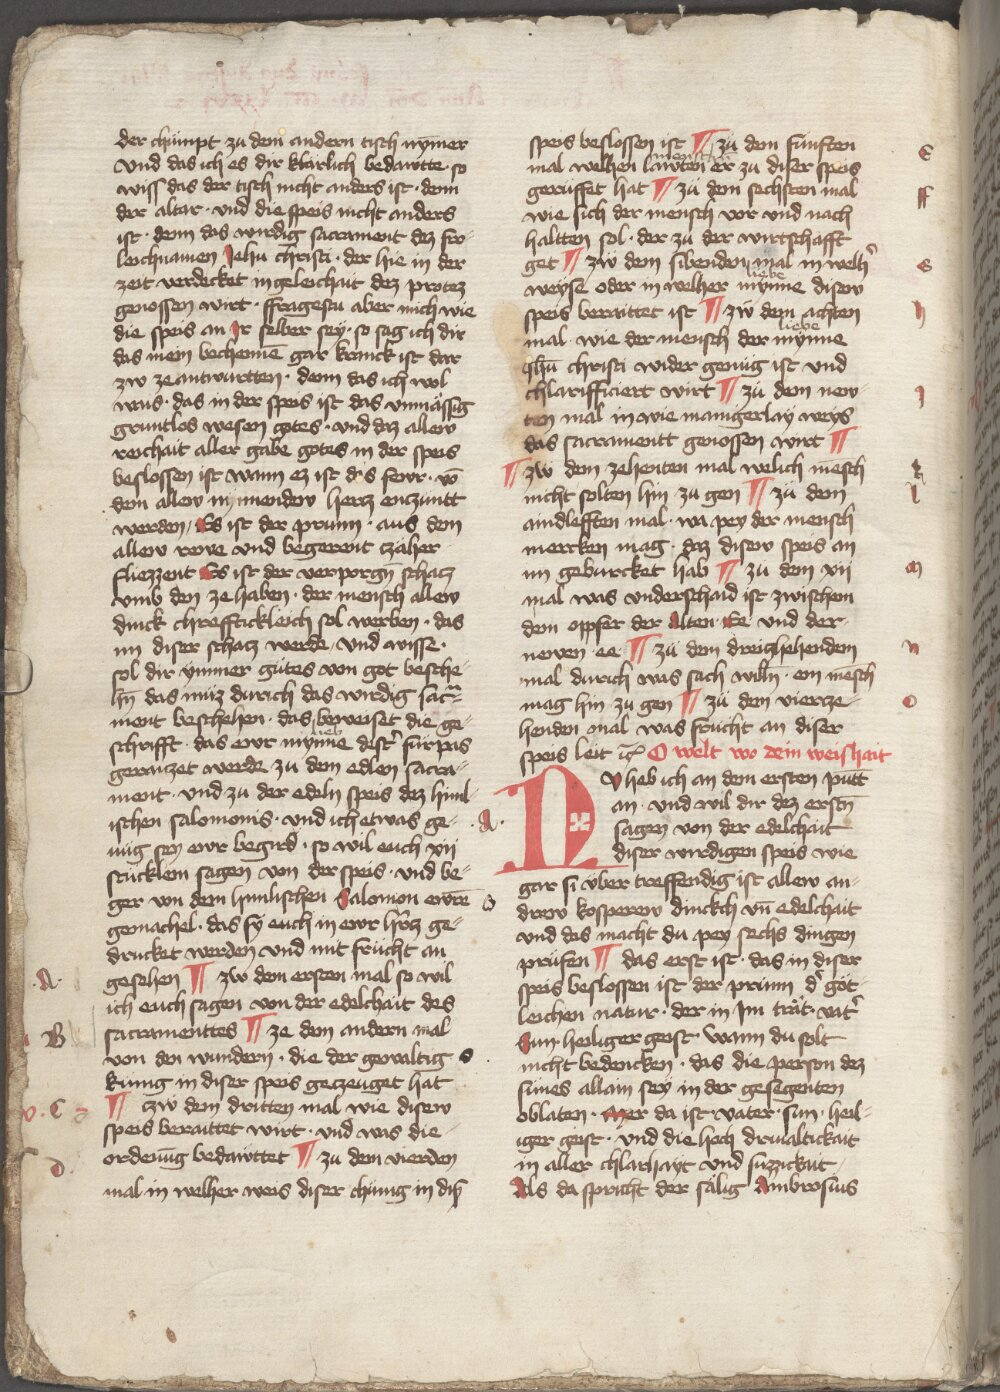 der chümpt zu dem andern tisch nymer
Vnd das ich es dir klarlich bedawtte · so
wiss das der tisch nicht anders ist · denn
der altar · vnd die speis nicht anders
ist · denn das wirdig sacrament dez fro-
leichnamen Jehū christi · der hie in der
zeit verdecket in geleichait dez protez
genossen wirt · ffragestu aber mich wie
die speis an Jr selber sey · so sag ich dir
das mein bechennē gar kranck ist dar
zw ze antwurtten · denn das ich wol
wais · das in der speis ist das vnmässig
gruntlos wesen gotes · vnd daz allew
reichait aller gabe gotes in der speis
beslossen ist wann ez ist ds fewr · vō
dem allew mynnendew hercz enczuntt
werden / Es ist der prunn · aus dem
allew rewe vnd begerent czäher
fliezzent Es ist der verporgn schacz
vmb den ze haben · der mensch allew
dinck chrefftickleich sol werben · das
im diser schacz werde / vnd wisse ·
sol dir ymmer gutes von got besche-
hn das müz durich das wirdig sacra-
ment beschehen · das beweiset die ge-
schrifft · das ewr mynne dest fürpas
lieb
geraiczet werde zu dem edlen sacra-
ment · vnd zu der edeln speis dez himl-
ischen salomonis · vnd ich etwas ge-
nüg sey ewr begird · so wil euch xii
stücklein sagen von der speis · vnd be-
ger von dem himlischen Salomon ewrē
gemachel · das sy euch in ewr hercz ge-
drucket werden vnd mit frücht an
gesehen ¶ zw dem ersten mal so wil
ich euch sagen von der edelchait des
sacramenttes ¶ ze dem andern mal
von den wundern · die der gewaltig
künig in diser speis geczeuget hat
¶ zw dem dritten mal wie disew
speis beraittet wirt · vnd was die
ordenüg bedawttet ¶ zu dem vierden
mal in welher weis diser chünig in dis
A
B
C
D
speis beslossen ist ¶ zü dem fünften
mal welhen lawten er zu diser speis
menschen
gerüffet hat ¶ zü dem sechsten mal
wie sich der mensch vor vnd nach
haltten sol · der zü der wirtschafft
get ¶ zw dem sibenden mal in welh
weyse oder in welher mynne disew
liebe
speis beraittet ist ¶ zw dem achten
mal · wie der mensch der mynne
liebe
Jhū christi wider genüg ist vnd
chlarifficiert wirt ¶ zü dem new-
ten mal in wie manigerlay weys
das sacramentt genossen wirt ¶
¶ zw dem zehenten mal welich mēsch
nicht solten hin zu gen ¶ zü dem
aindlefften mal · wa pey der mensch
mercken mag · daz disew speis an
im gewurcket hab ¶ zü dem xii
mal was vnderschaid ist zwischem
dem oppfer der Alten Ee vnd der
newen ee ¶ zü dem dreiczehendem
mal durich was sach willn · ein mēsch
mag hin zu gen ¶ zü dem viercze-
henden mal was frücht an diser
speis leit O welt wo dein weishait
NV heb ich an dem ersten putt
an · vnd wil dir dez erstn
sagen von der edelchait
diser wirdigen speis wie
gar si über treffendig ist allew an-
drew kosperew dinckch vn edelchait
vnd das macht du pey sechs dingen
prüfen ¶ das erst ist · das in diser
speis beslossen ist der prünn d göt-
leichen natur · der in Jm trät · vat
Sun heiliger geist · wann du solt
nicht bedencken · das die person dez
sunes allain sey in der gesegenten
oblaten · mer da ist vater · sun · heil-
iger geist · vnd die hoch driualtickait
in aller chlarhayt vnd süzzickait /
Als da spricht der sälig Ambrosius
E
ff
G
h
J
k
l
m
n
O
A